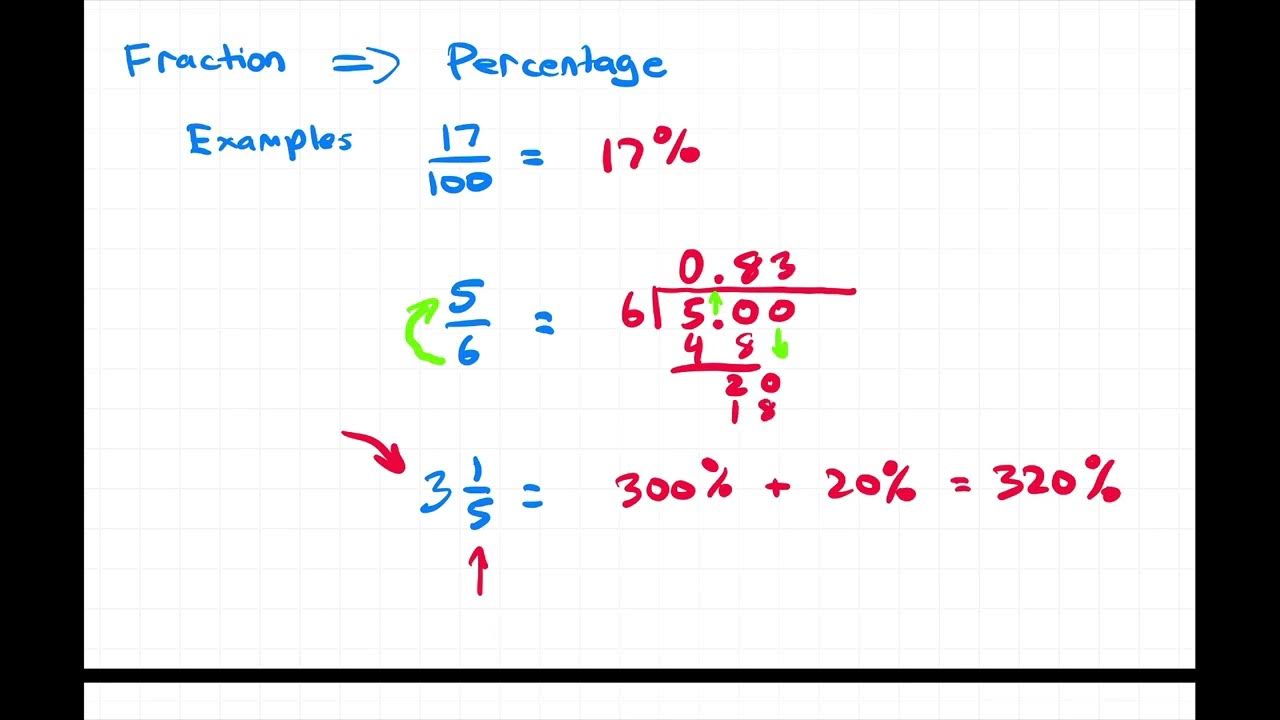 Fraction => Percentage
Examples 17/100 = 17%
0.83
5/6 = 6 5.00
4 8
20
18
3 1/5 = 300% + 20% = 320%